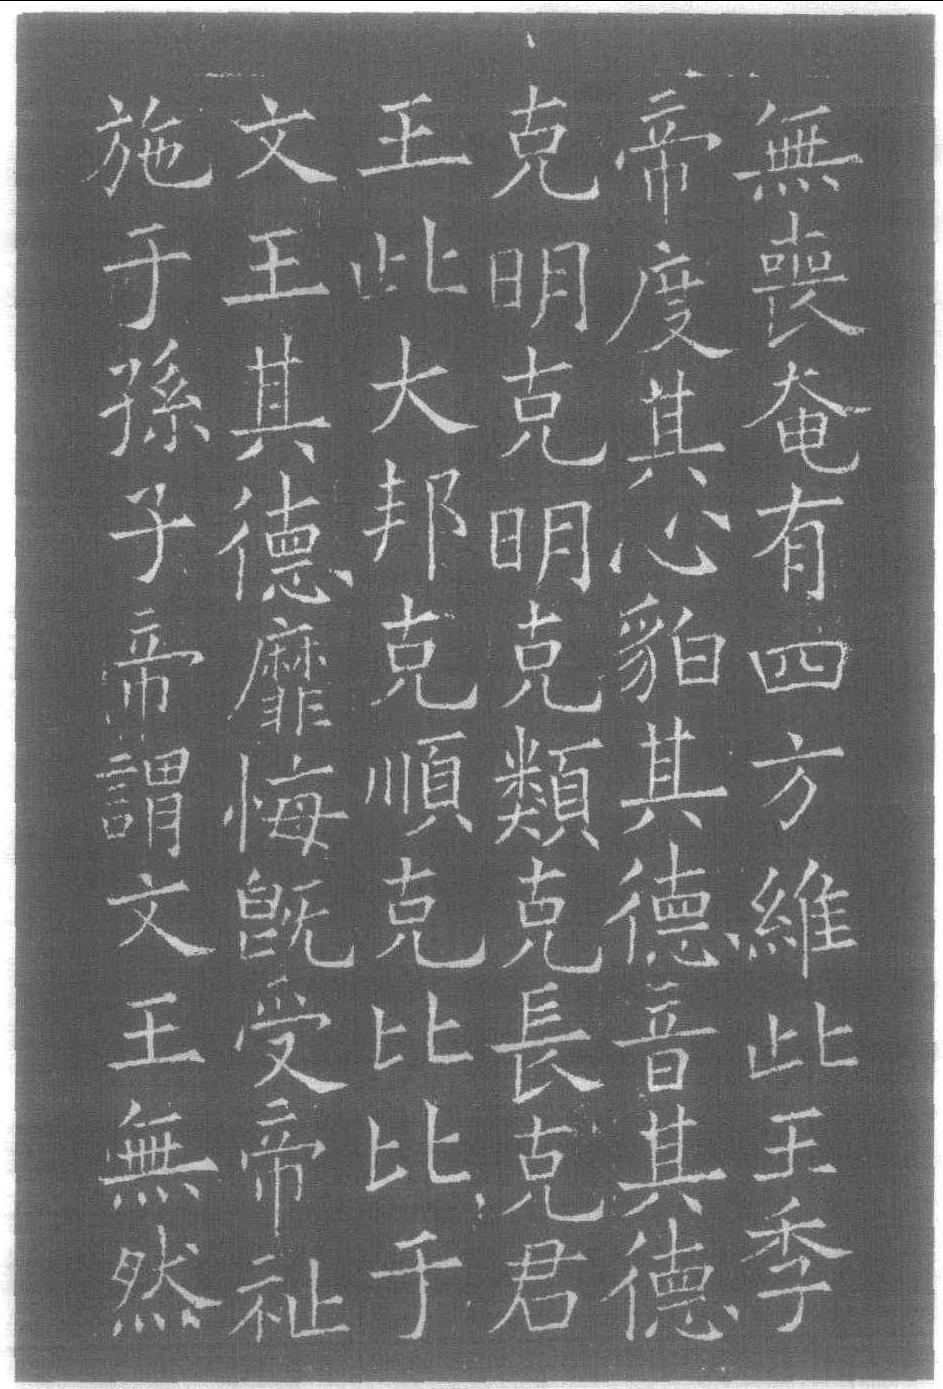 無喪奄有四方維此王季
帝度其心貊其德音其德
克明克明克類克長克君
王此大邦克順克比比于
文王其德靡悔既受帝祉
施于孫子帝謂文王無然